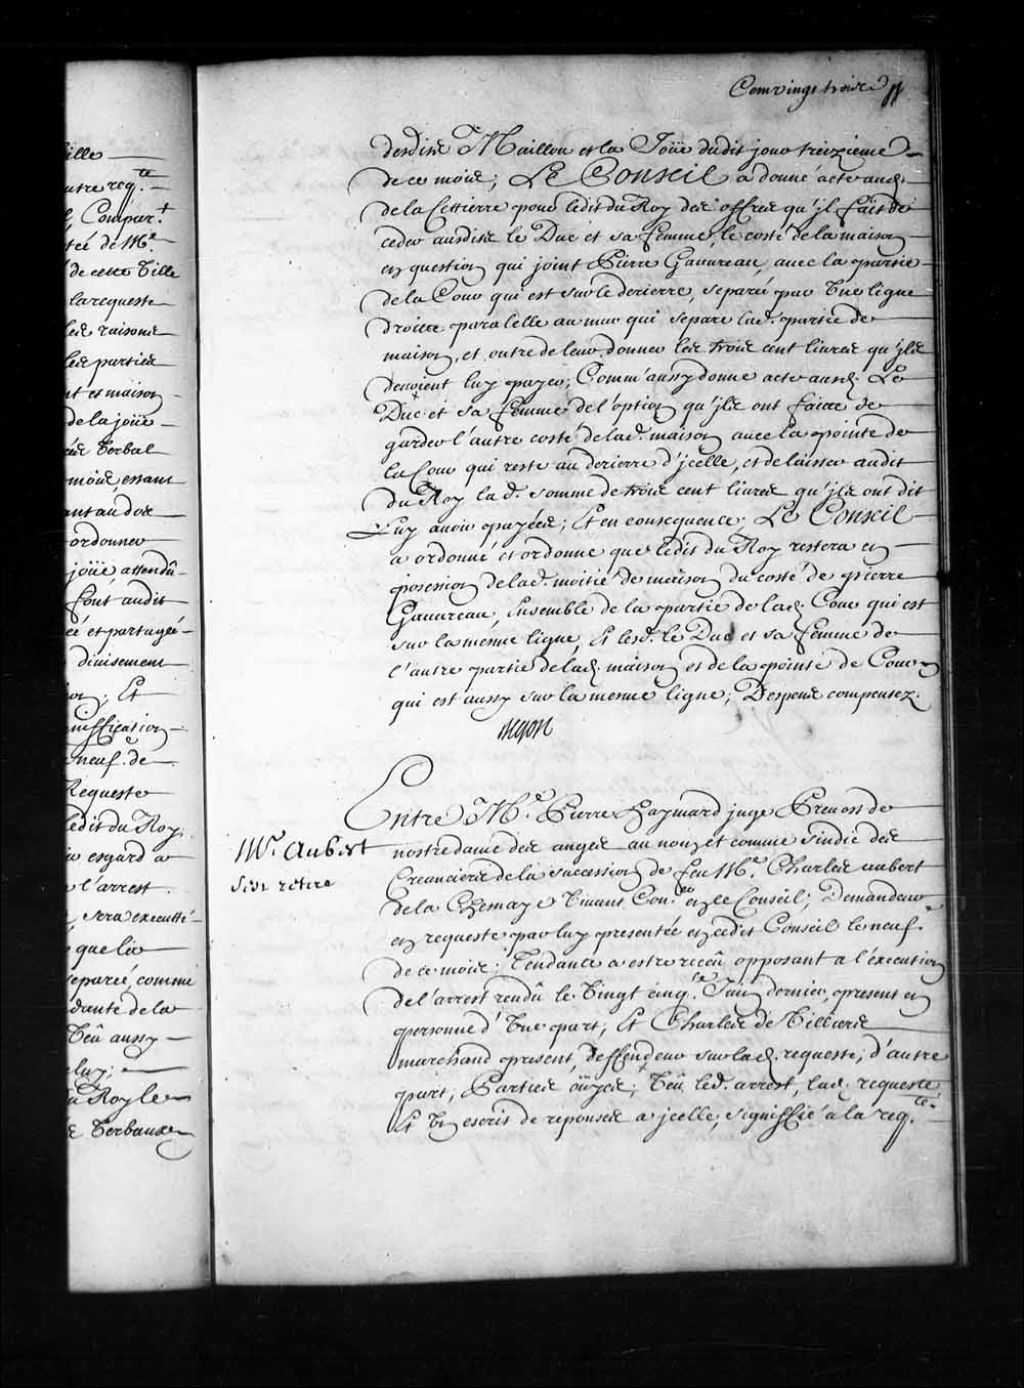 Cent vingt trois
desdits Maillou et la Joüe dudit jour treizieme
de ce mois; Le Conseil a donné acte aud.
de la Cettierre pour ledit du Roy des offres qu'jl fait de
ceder ausdits le Duc et sa femme, le costé de la maison
en question qui joint Pierre Gauureau, auec la partie
de la Cour qui est sur le derierre, separé par Vne ligne
droitte paralelle au mur qui separe lad. partie de
maison, et outre de leur donner les trois cent liures qu'jls
deuoient luy payer; Comm'aussy donne acte ausd. Le
Duc et sa femme de l'option qu'jls ont faitte de
garder l'autre costé de lad. maison auec la pointe de
la Cour qui reste au derierre d'jcelle, et de laisser audit
du Roy la d. somme de trois cent liures qu'jls ont dit
Luy auoir payées; Et en consequence, Le Conseil
a ordonné et ordonne que ledit du Roy restera en
possession de lad. moitié de maison du costé de pierre
Gauureau, Ensemble de la partie de lad. Cour qui est
sur la mesme ligne, Et lesd. le Duc et sa femme de
l'autre partie de lad. maison et de la pointe de Cour
qui est aussy sur la mesme ligne; Despens compensez.
Begon
Entre Me. Pierre Haymard juge Preuost de
nostre dame des anges au nom et comme sindic des
Creanciers de la succession de feu Me. Charles aubert
de la Chenaye Viuant Coner en ce Conseil; Demandeur
en requeste par luy presentée en cedit Conseil le neuf.
de ce mois; Tendante a estre receu opposant a l'execution
de l'arrest rendû le Vingt cinq.e Juin dernier, present en
personne d'Vne part; Et Charles de Villiers
marchand present, deffendeur sur lad. requeste, d'autre
part; Parties oüyes; Veu led. arrest, lad. requeste
Et Vn escrit de reponses a jcelle, signiffié a la req.te
Mr. Aubert
s'est retiré
ille
utre req.te
Compar.t
tée de Me
de cette Ville
la requeste
les raisons
les parties
nt et maison
de la joüe
Verbal
mois estant
ordonner
joüe attendu
font audit
cé et partagée
diuisement
Et
niffication
neuf.e de
Requeste
ledit du Roy
esgard a
l'arrest
sera executté
que les
eparée, comme
dante de la
Veû aussy
luy;
du Roy le
Verbaux